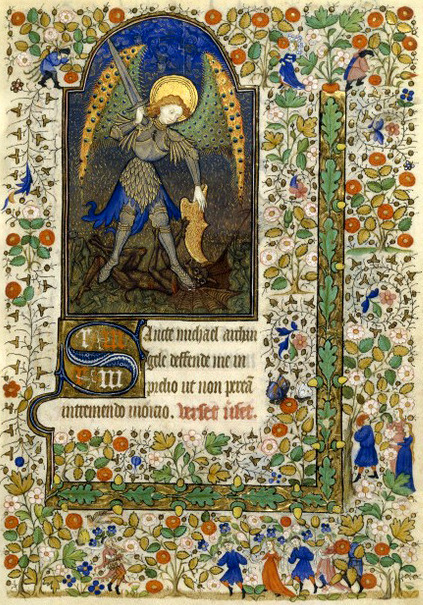 Sancte michael archan
gele deffende me in
prelio ut non pereā
intremendo iudicio. verset